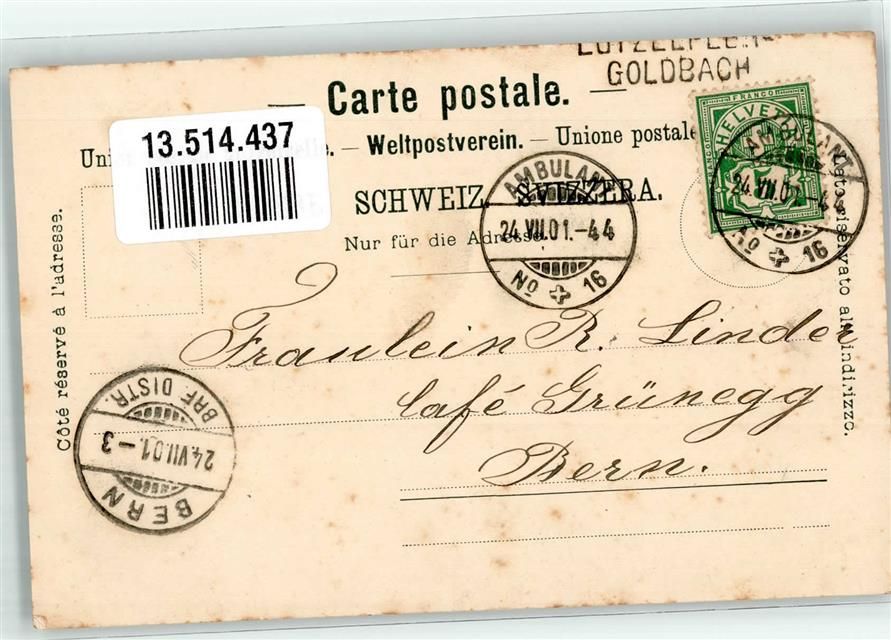 LÜTZELFLÜH-
GOLDBACH
Carte postale.
13.514.437
Weltpostverein. — Unione postale
SCHWEIZ. SVIZZERA.
Nur für die Adresse.
FRANCO
HELVETIA
AMBULANT
24.VII.01.-44
No 16
AMBULANT
24.VII.01.-44
No 16
Côté réservé à l'adresse.
Lato riservato all'indirizzo.
Fräulein R. Linder
Café Grünegg
Bern.
BRF. DISTR.
24.VII.01.-3
BERN